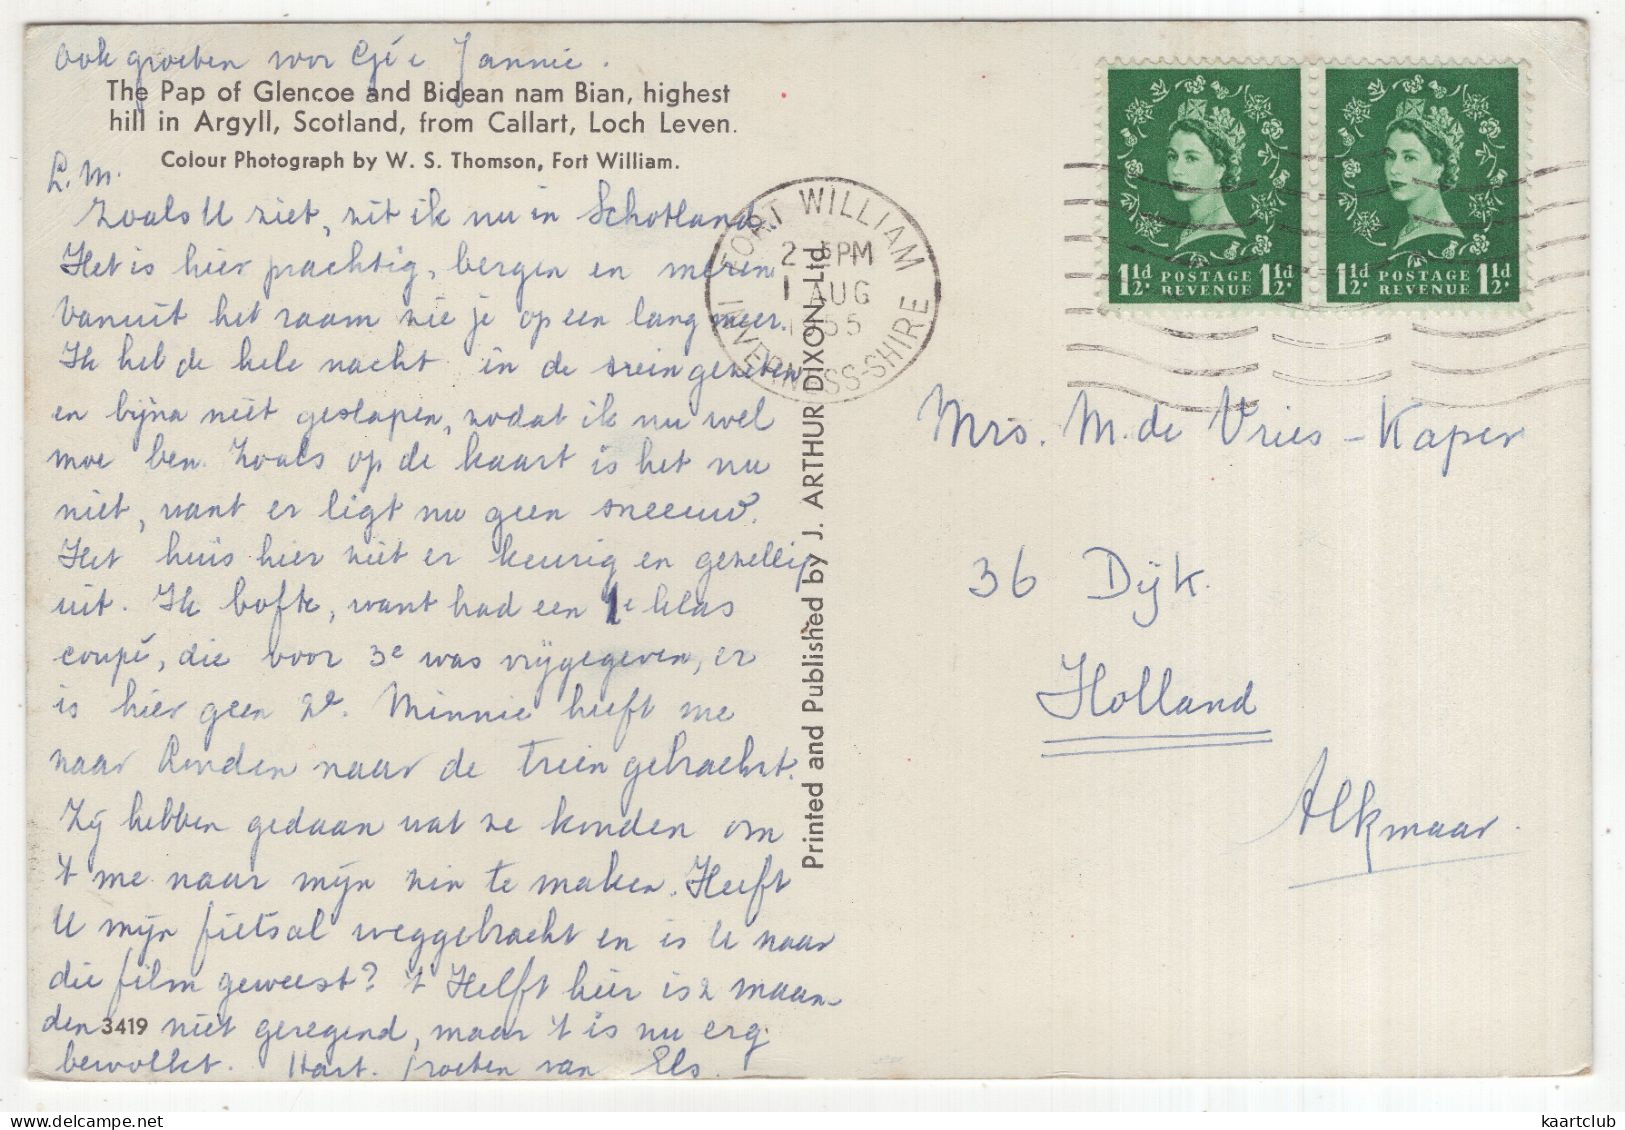 Ook groeten voor Gjé e Jannie.
The Pap of Glencoe and Bidean nam Bian, highest
hill in Argyll, Scotland, from Callart, Loch Leven.
Colour Photograph by W. S. Thomson, Fort William.
L.M.
Zoals U ziet, zit ik nu in Schotland
Het is hier prachtig, bergen en meren
Vanuit het raam zie je op een lang meer.
Ik heb de hele nacht in de trein gezeten
en bijna niet geslapen, zodat ik nu wel
moe ben. Zoals op de kaart is het nu
niet, want er ligt nu geen sneeuw.
Het huis hier ziet er keurig en gezellig
uit. Ik bofte, want had een 1e klas
coupé, die voor 3e was vrijgegeven, er
is hier geen 2e. Minnie heeft me
naar Londen naar de trein gebracht.
Zij hebben gedaan wat ze konden om
't me naar mijn zin te maken. Heeft
U mijn fietsal weggebracht en is U naar
die film geweest? 't Helft hier is 2 maan-
den niet geregend, maar 't is nu erg
3419
bewolkt. Hart. groeten van Els.
Printed and Published by J. ARTHUR DIXON Ltd
FORT WILLIAM
2- 5 PM
1 AUG
1955
INVERNESS-SHIRE
1½d POSTAGE REVENUE 1½d
1½d POSTAGE REVENUE 1½d
Mrs. M. de Vries - Kaper
36 Dijk.
Holland
Alkmaar.
kaartclub